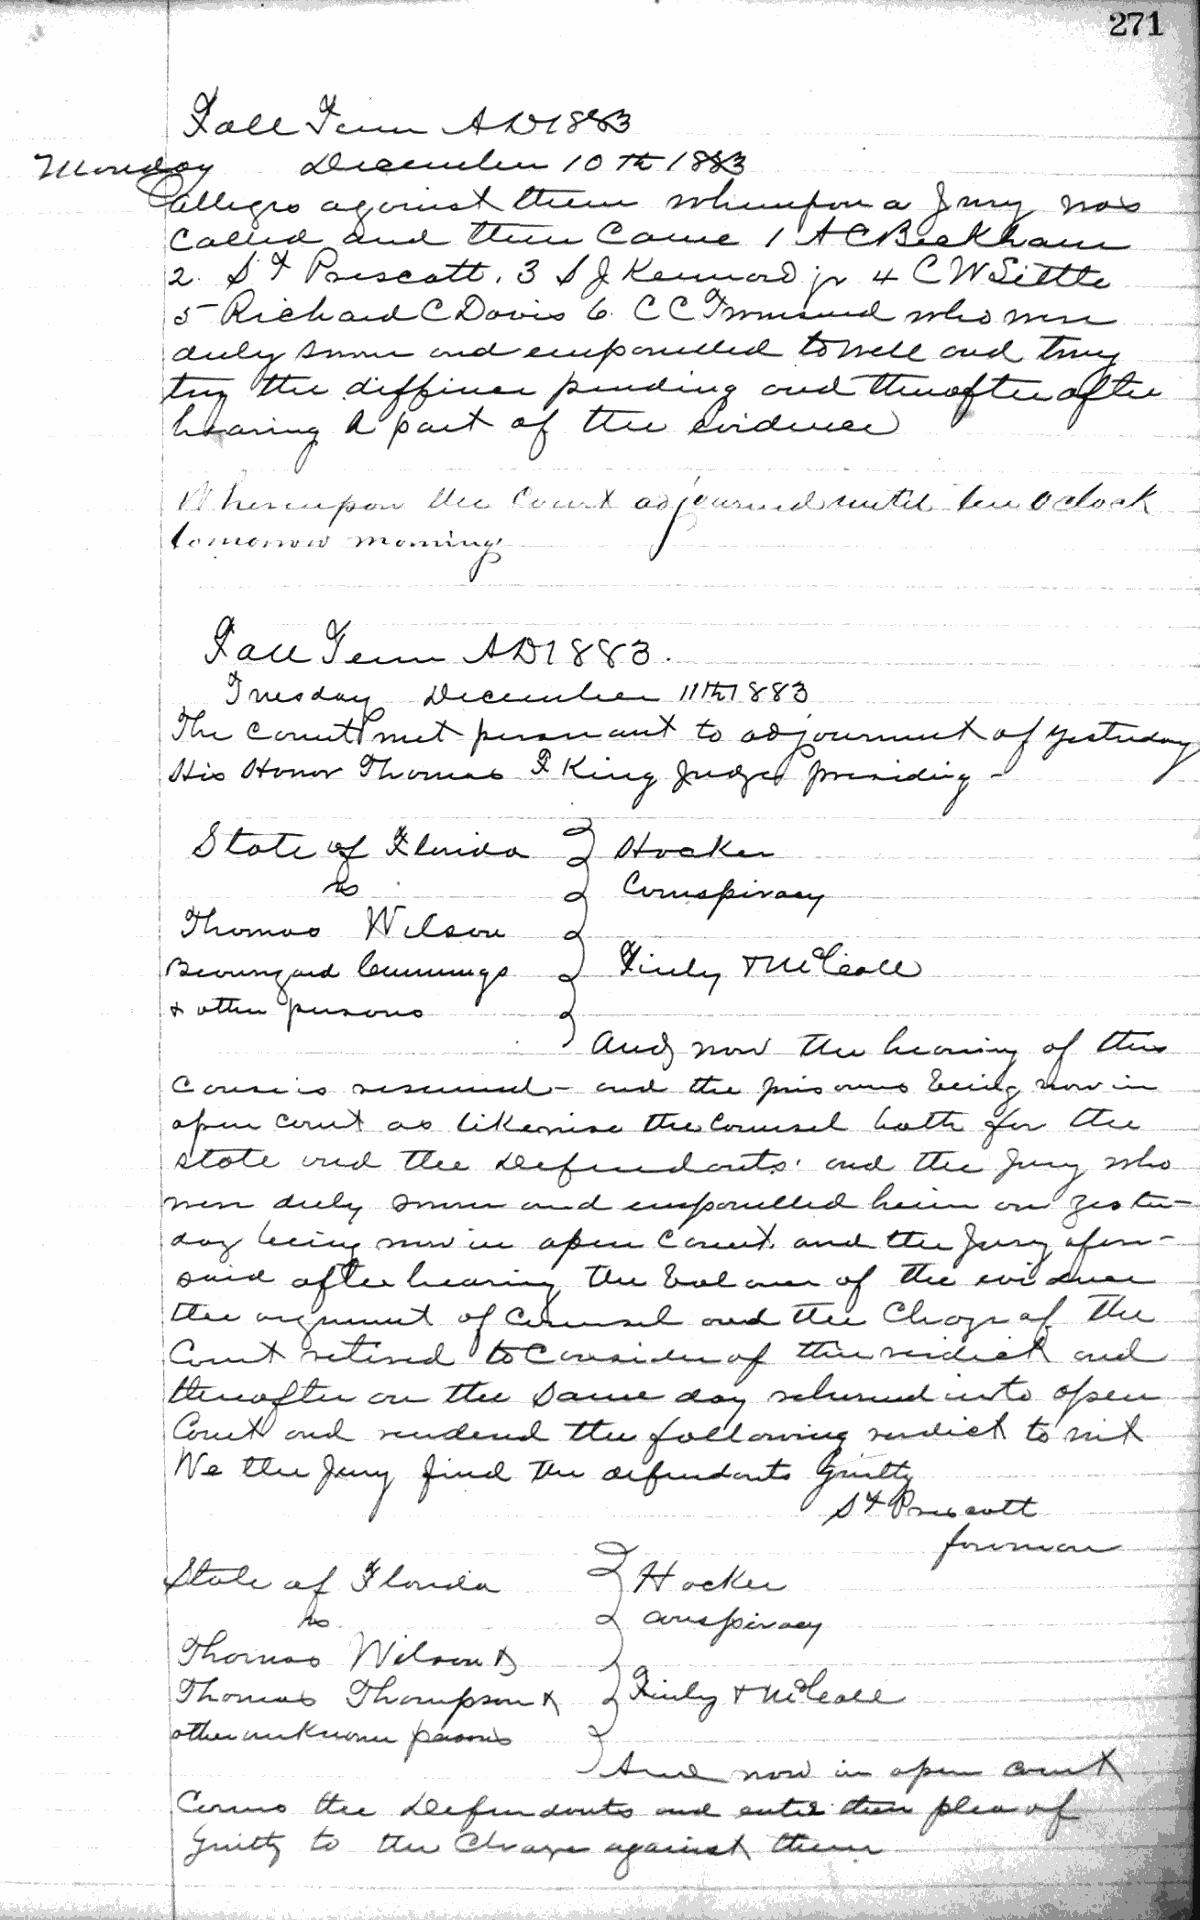 271
Fall Term AD 1883
Monday December 10th 1883
allege against them whereupon a Jury was
Called and there Came 1 A C Beckham
2. S F Prescott. 3 S J Kennard jr 4 C W Little
5 Richard C Davis 6. C C who were
duly sworn and empanelled to well and truy
try the differnce pending and thereafter after
hearing a part of the evidence
Whereupon the Court adjourned until ten Oclock
tomorrow morning
Fall Term AD 1883.
Tuesday December 11th 1883
The Court met persuant to adjournment of yesterday
His Honor Thomas F King Judge presiding -
State of Florida Hocker
vs Conspiracy
Thomas Wilson
Beauregard Cummings Finly & McCall
& other persons
And now the hearing of this
Cause is resumed - and the prisoners being now in
open Court as likewise the Counsel both for the
state and the Defendants. and the Jury who
were duly sworn and empanelled herein on yester-
day being now in open Court. and the Jury afore-
said after hearing the balance of the evidence
the argument of Counsel and the Charge of the
Court retired to Consider of their verdict and
thereafter on the same day returned into open
Court and rendered the following verdict to wit
We the Jury find the defendants Guilty
S F Prescott
foreman
State of Florida Hocker
vs Conspiracy
Thomas Wilson &
Thomas Thompson & Finly & McCall
other unknown persons
And now in open Court
Comes the Defendants and enter their plea of
Guilty to the Charge against them